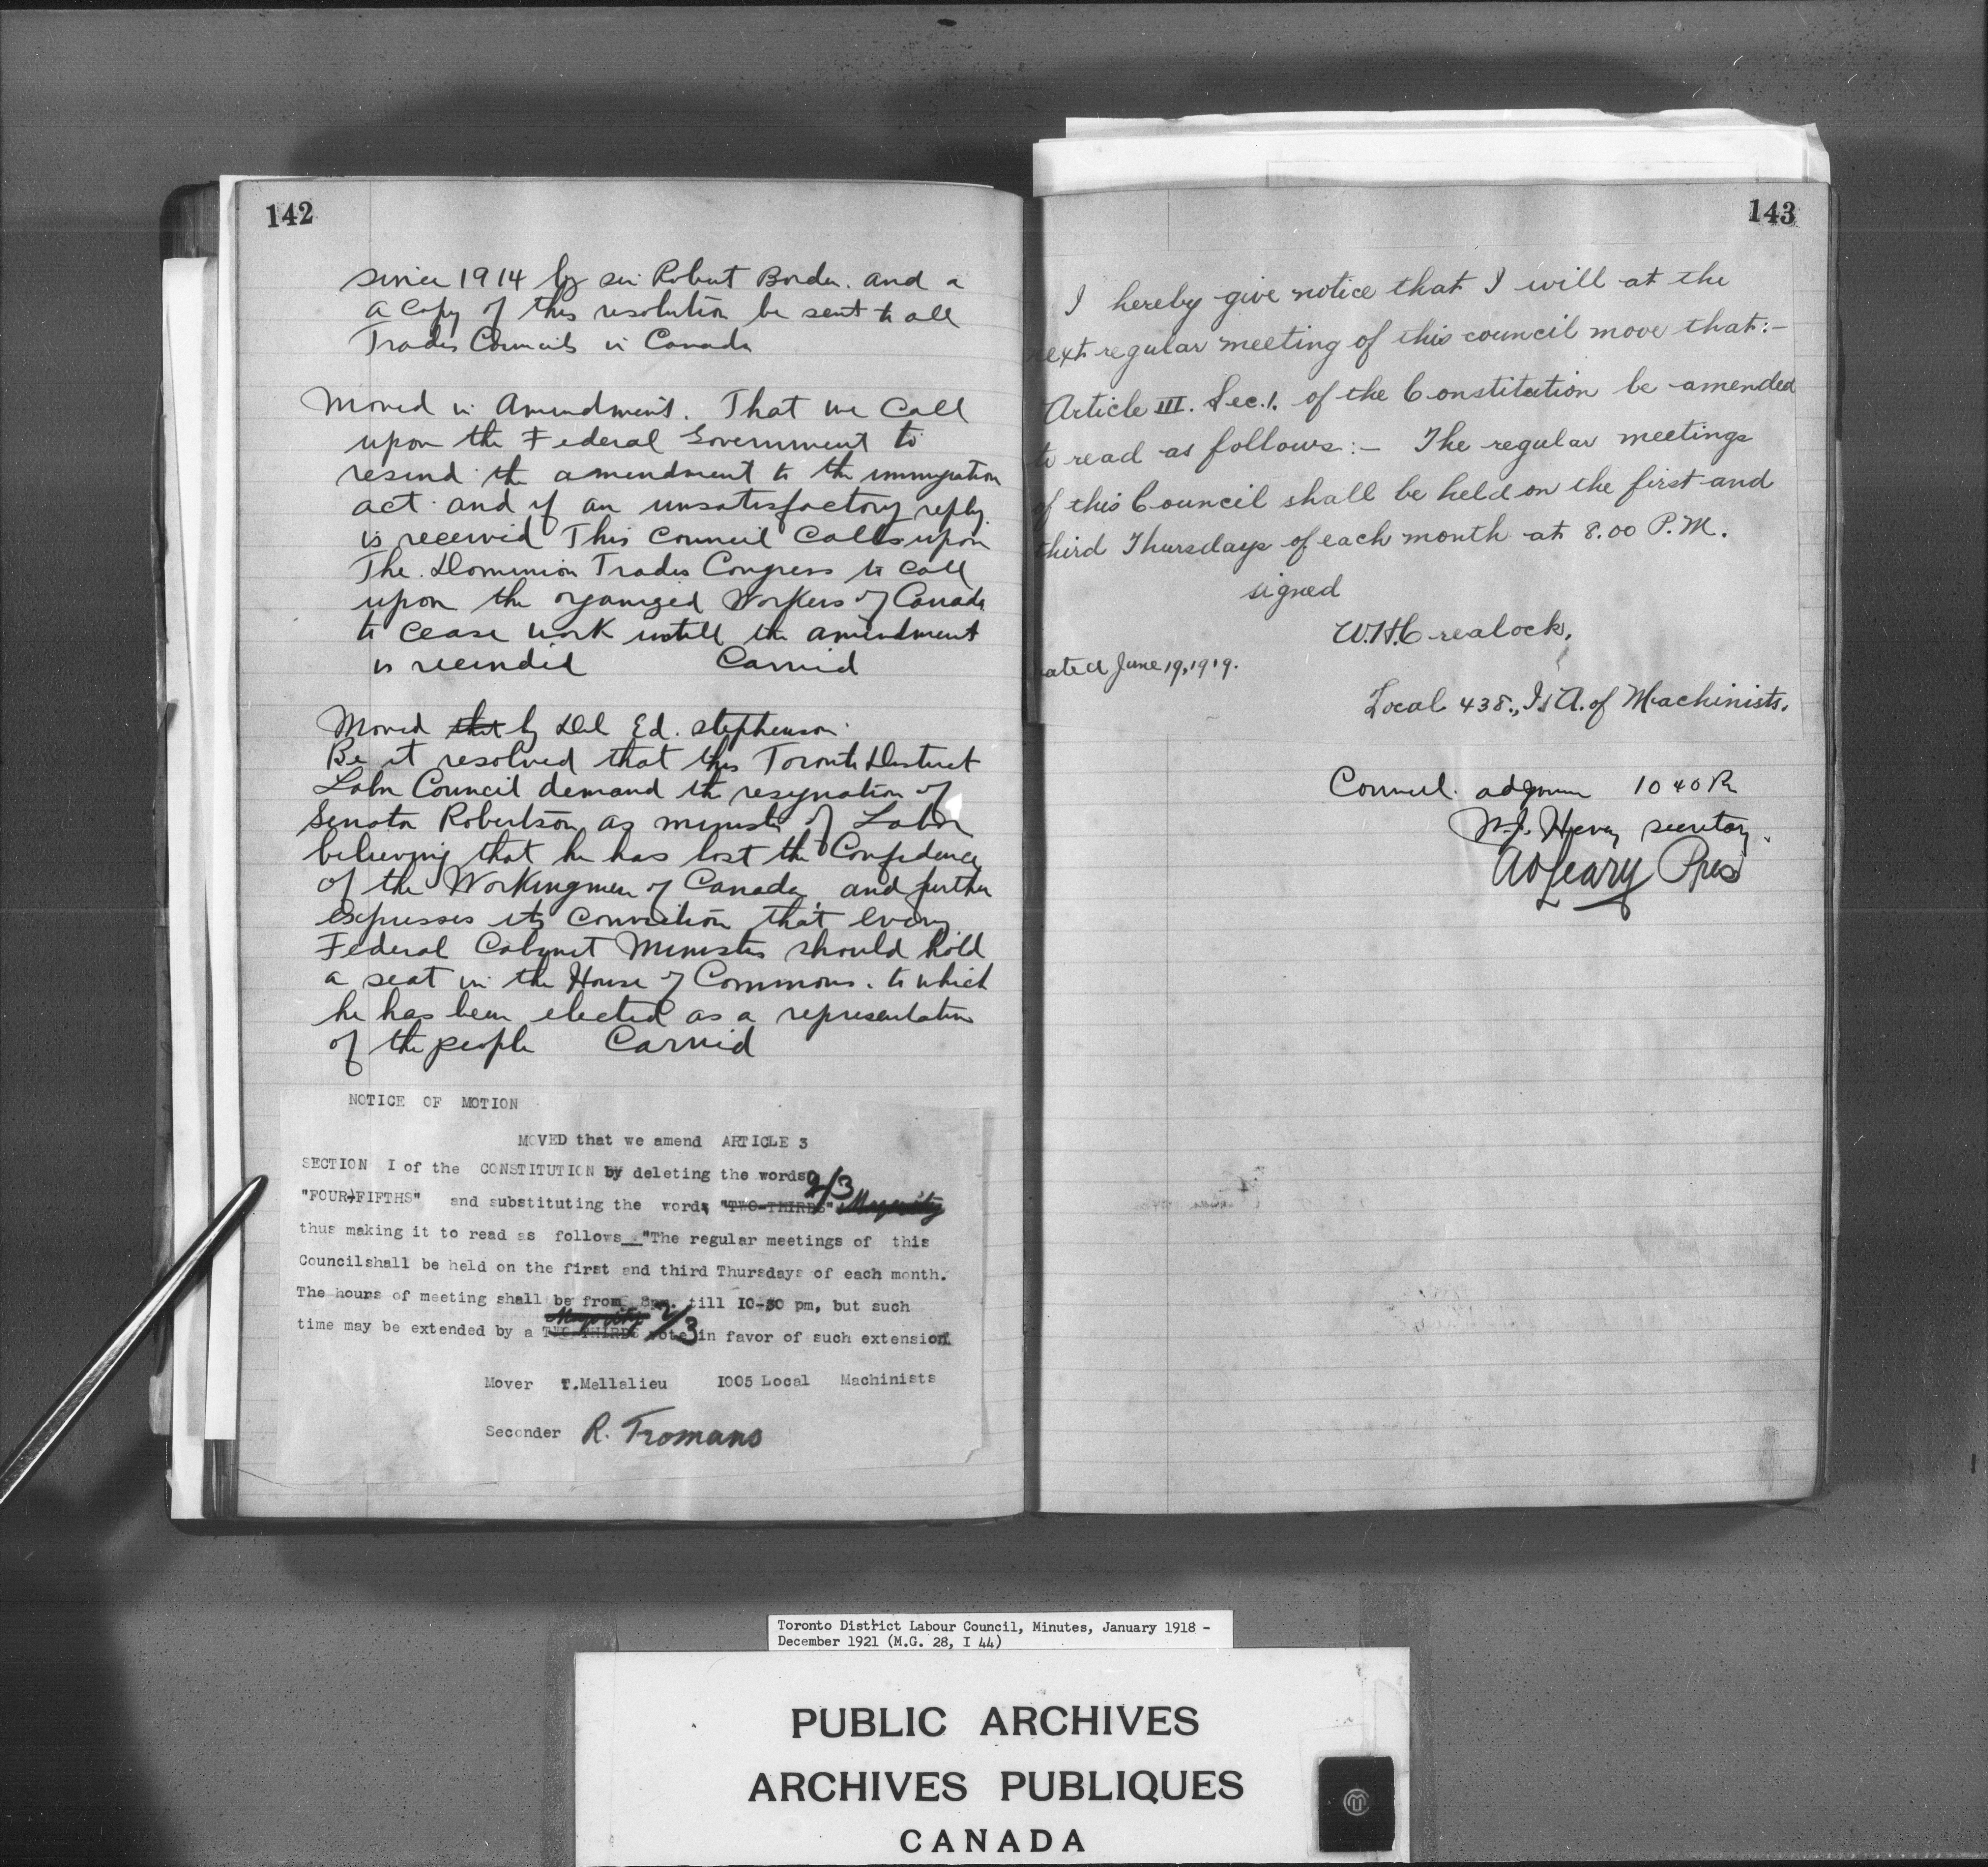 142
since 1914 by sir Robert Borden. and a
a copy of this resolution be sent to all
Trades Councils in Canada
Moved in Amendment. That we Call
upon the Federal Government to
resind the amendment to the immigration
act and if an unsatisfactory reply
is received This Council Calls upon
The Dominion Trades Congress to call
upon the organized Workers of Canada
to cease work untill the amendment
is recinded Carried
Moved that by Del Ed. Stephenson
Be it resolved that this Toronto District
Labor Council demand the resignation of
Senator Robertson as minister of Labor
believing that he has lost the Confidence
of the Workingmen of Canada and further
expresses its conviction that every
Federal Cabinet Minister should hold
a seat in the House of Commons. to which
he has been elected as a representative
of the people Carried
NOTICE OF MOTION
MOVED that we amend ARTICLE 3
SECTION I of the CONSTITUTION by deleting the words
"FOUR-FIFTHS" and substituting the words "TWO-THIRDS" 2/3 Majority
thus making it to read as follows "The regular meetings of this
Councilshall be held on the first and third Thursdays of each month.
The hours of meeting shall be from 8pm. till IO-30 pm, but such
time may be extended by a TWO THIRDS Majority 2/3 vote in favor of such extension
Mover T.Mellalieu I005 Local Machinists
Seconder R. Tromans
143
I hereby give notice that I will at the
next regular meeting of this council move that:-
Article III. Sec.1. of the Constitution be amended
to read as follows:- The regular meetings
of this Council shall be held on the first and
third Thursdays of each month at 8.00 P.M.
signed
W.H.Crealock,
ated June 19, 1919.
Local 438., I.A. of Machinists.
Council adjourn 10 40 Pm
secretary.
A OLeary Pres
Toronto District Labour Council, Minutes, January 1918 -
December 1921 (M.G. 28, I 44)
PUBLIC ARCHIVES
ARCHIVES PUBLIQUES
CANADA